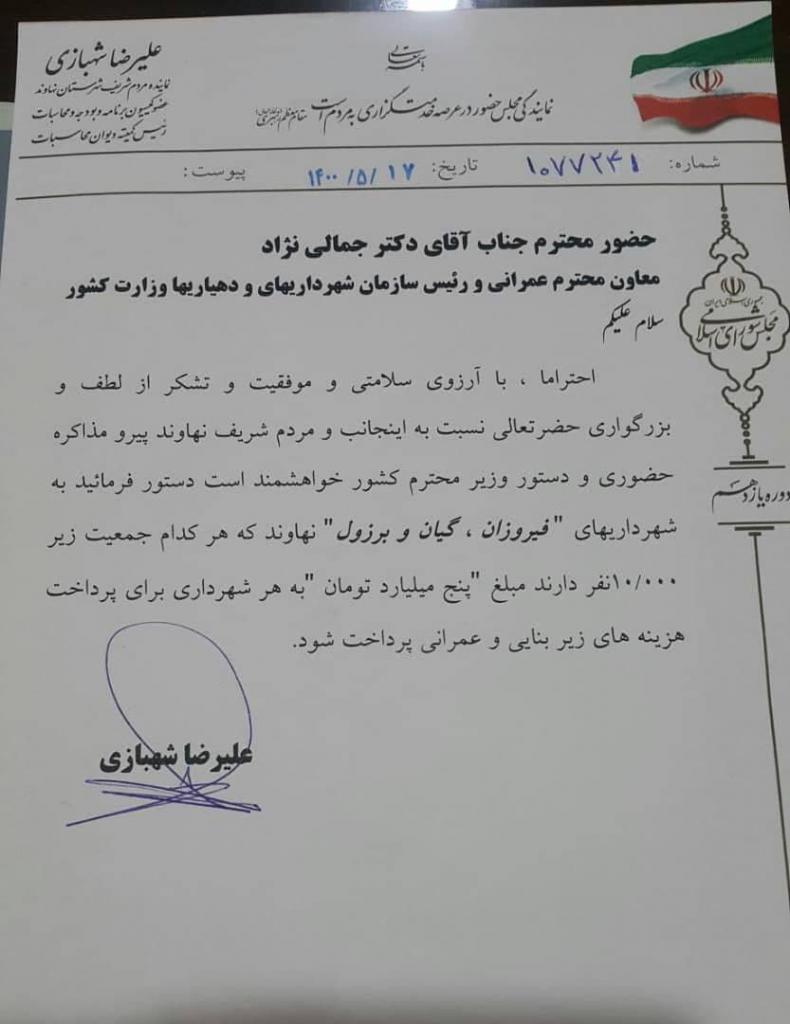 باسمه تعالی
علیرضا شهبازی
نماینده مردم شریف شهرستان نهاوند
عضو کمیسیون برنامه و بودجه و محاسبات
رئیس کمیته دیوان محاسبات
نمایندگی مجلس حضور در عرصه خدمتگزاری به مردم است
شماره: ۱۰۷۷۲۴۱
تاریخ: ۱۴۰۰/۵/۱۷
پیوست:
جمهوری اسلامی ایران
مجلس شورای اسلامی
دوره یازدهم
حضور محترم جناب آقای دکتر جمالی نژاد
معاون محترم عمرانی و رئیس سازمان شهرداریهای و دهیاریها وزارت کشور
سلام علیکم
احتراما ، با آرزوی سلامتی و موفقیت و تشکر از لطف و
بزرگواری حضرتعالی نسبت به اینجانب و مردم شریف نهاوند پیرو مذاکره
حضوری و دستور وزیر محترم کشور خواهشمند است دستور فرمائید به
شهرداریهای "فیروزان ، گیان و برزول" نهاوند که هر کدام جمعیت زیر
۱۰/۰۰۰نفر دارند مبلغ "پنج میلیارد تومان "به هر شهرداری برای پرداخت
هزینه های زیر بنایی و عمرانی پرداخت شود.
علیرضا شهبازی